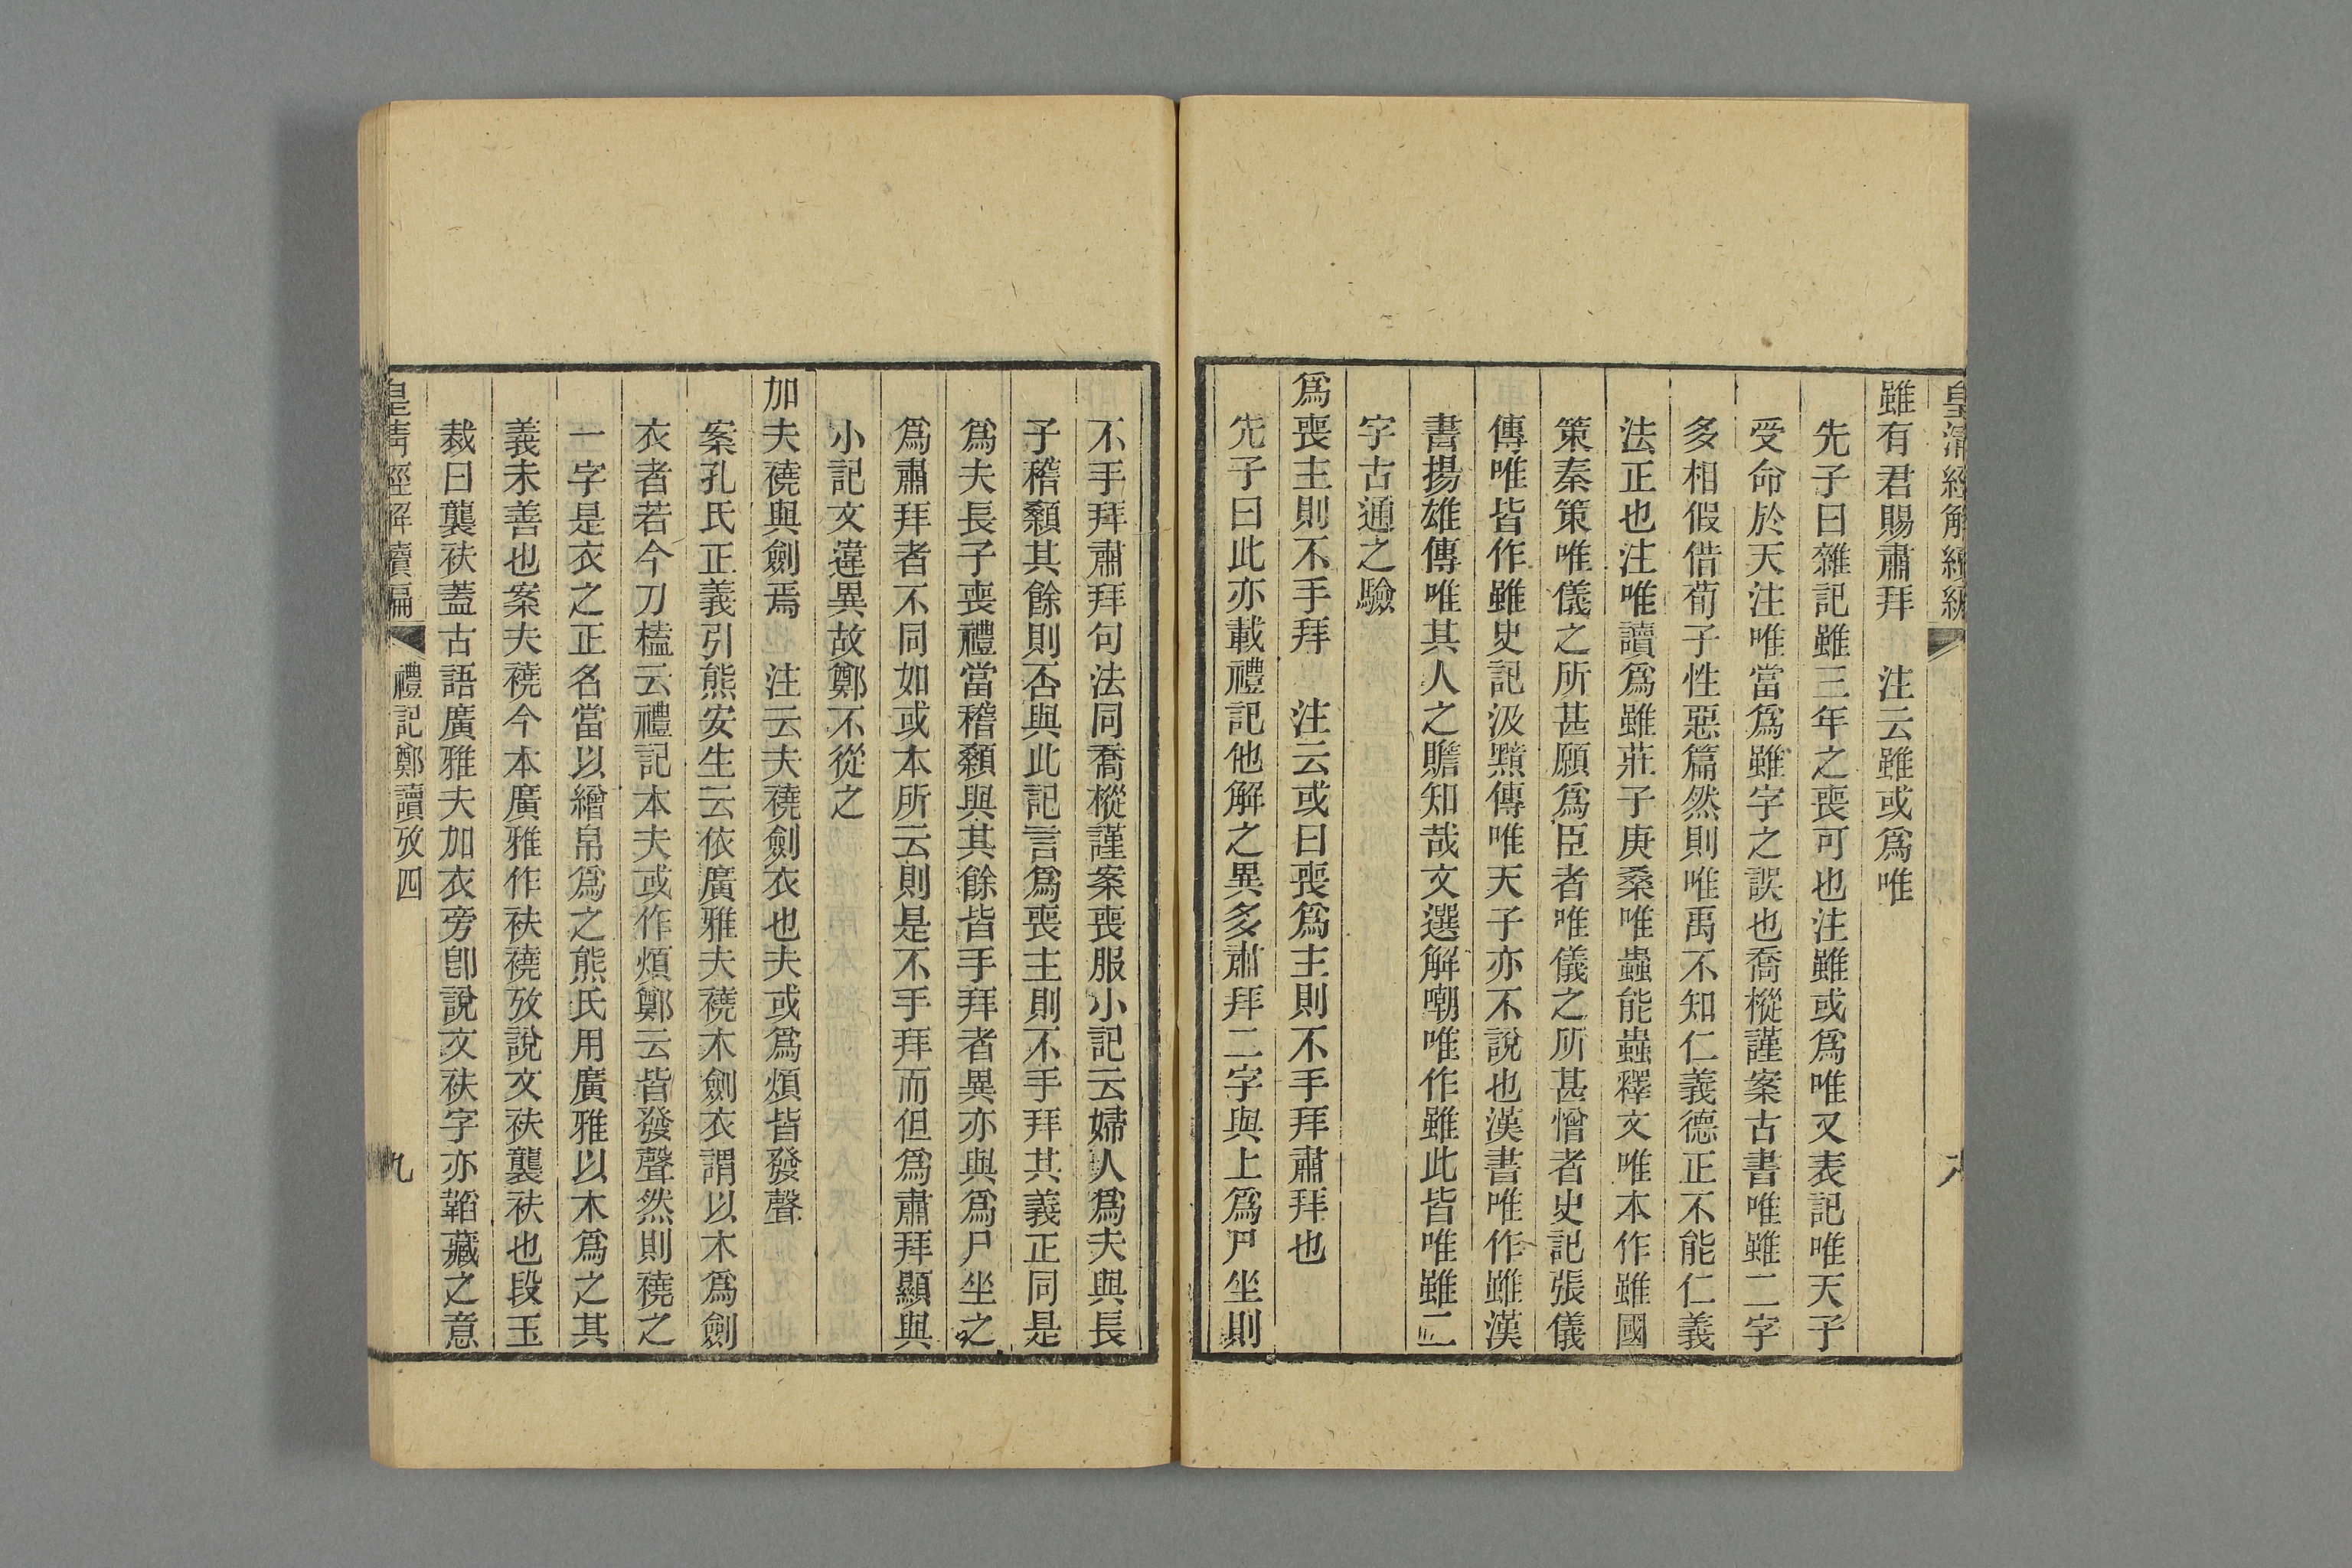 皇清經解續編
雖有君賜肅拜　注云雖或爲唯
先子曰雜記雖三年之喪可也注雖或爲唯又表記唯天子
受命於天注唯當爲雖字之誤也喬樅謹案古書唯雖二字
多相假借荀子性惡篇然則唯禹不知仁義德正不能仁義
法正也注唯讀爲雖莊子庚桑唯蟲能蟲釋文唯本作雖國
策秦策唯儀之所甚願爲臣者唯儀之所甚憎者史記張儀
傳唯皆作雖史記汲黯傳唯天子亦不說也漢書唯作雖漢
書揚雄傳唯其人之贍知哉文選解嘲唯作雖此皆唯雖二
字古通之驗
爲喪主則不手拜　注云或曰喪爲主則不手拜肅拜也
先子曰此亦載禮記他解之異多肅拜二字與上爲尸坐則
不手拜肅拜句法同喬樅謹案喪服小記云婦人爲夫與長
子稽顙其餘則否與此記言爲喪主則不手拜其義正同是
爲夫長子喪禮當稽顙與其餘皆手拜者異亦與爲尸坐之
爲肅拜者不同如或本所云則是不手拜而但爲肅拜顯與
小記文違異故鄭不從之
加夫襓與劍焉　注云夫襓劍衣也夫或爲煩皆發聲
案孔氏正義引熊安生云依廣雅夫襓木劍衣謂以木爲劍
衣者若今刀榼云禮記本夫或作煩鄭云皆發聲然則襓之
一字是衣之正名當以繒帛爲之熊氏用廣雅以木爲之其
義未善也案夫襓今本廣雅作袟襓攷說文袟襲袟也段玉
裁曰襲袟蓋古語廣雅夫加衣旁卽說文袟字亦韜藏之意
皇清經解續編　禮記鄭讀攷四　九